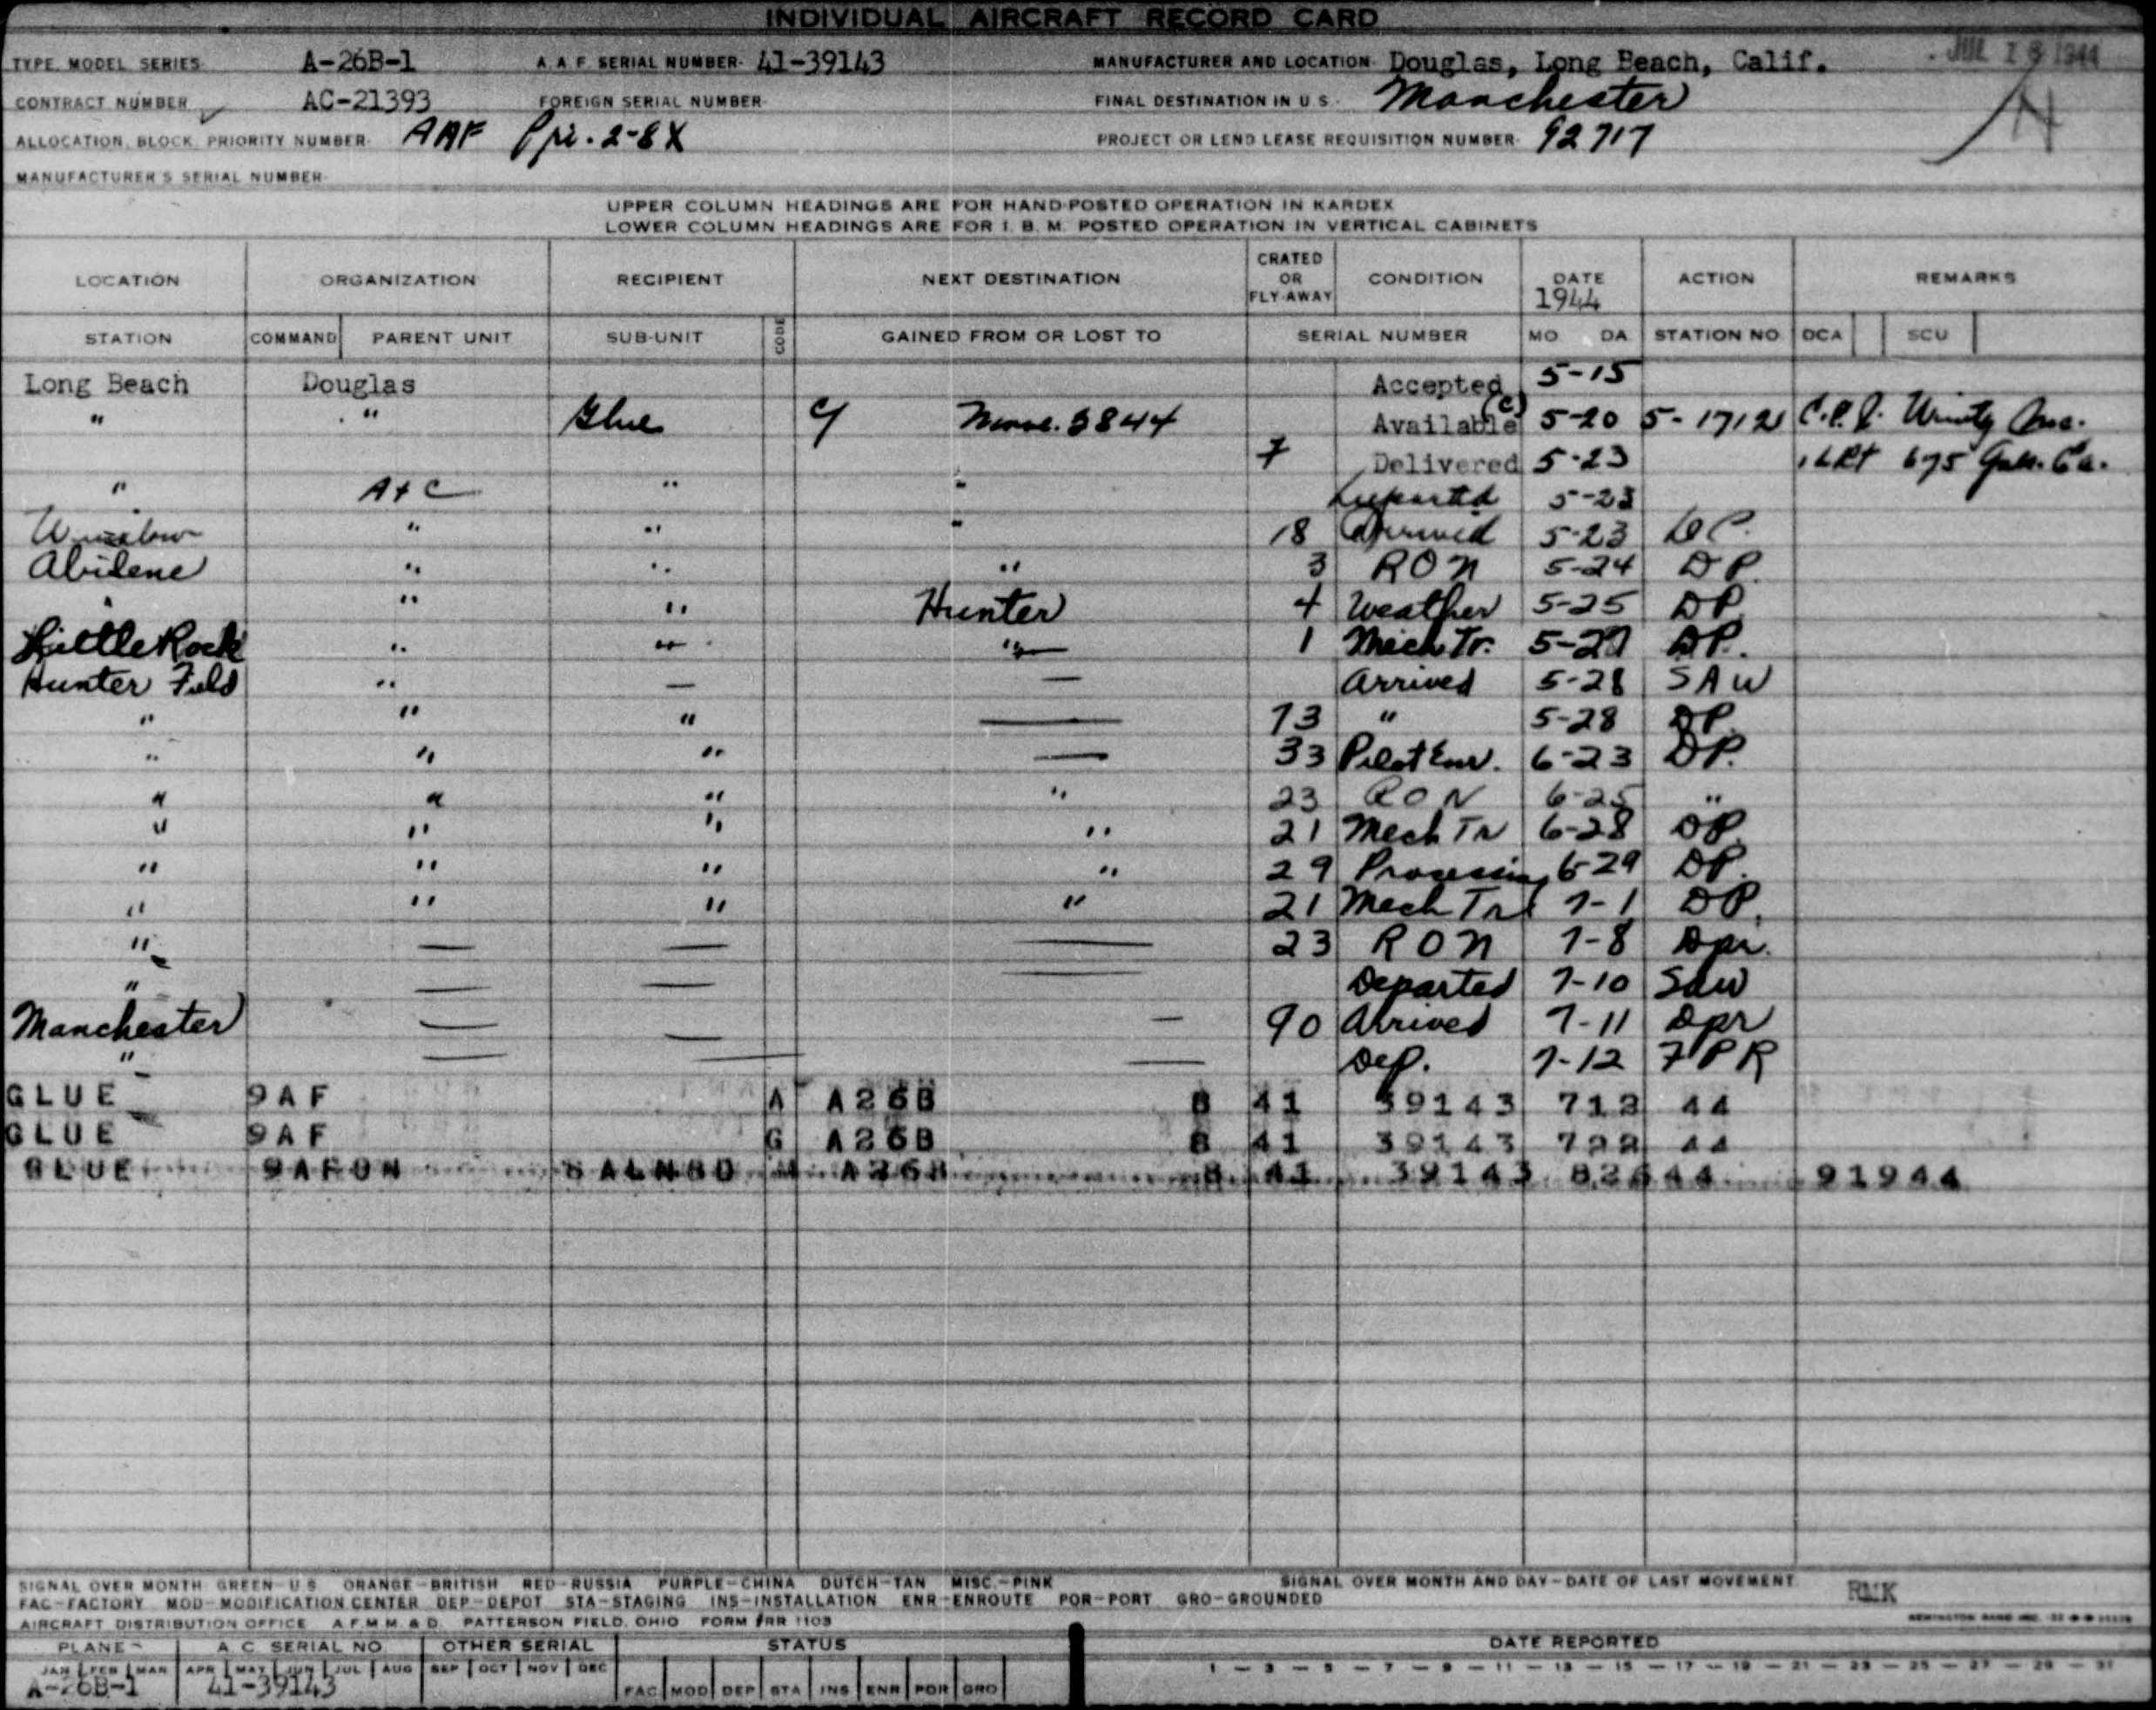 INDIVIDUAL AIRCRAFT RECORD CARD
TYPE, MODEL, SERIES A-26B-1 A. A. F. SERIAL NUMBER- 41-39143 MANUFACTURER AND LOCATION- Douglas, Long Beach, Calif. JUL 1944
CONTRACT NUMBER AC-21393 FOREIGN SERIAL NUMBER- FINAL DESTINATION IN U. S.- Manchester N
ALLOCATION, BLOCK, PRIORITY NUMBER- AAF Pri. 2-8X PROJECT OR LEND LEASE REQUISITION NUMBER- 92717
MANUFACTURER'S SERIAL NUMBER-
UPPER COLUMN HEADINGS ARE FOR HAND-POSTED OPERATION IN KARDEX
LOWER COLUMN HEADINGS ARE FOR I. B. M. POSTED OPERATION IN VERTICAL CABINETS
LOCATION ORGANIZATION RECIPIENT NEXT DESTINATION CRATED OR FLY-AWAY CONDITION DATE 1944 ACTION REMARKS
STATION COMMAND PARENT UNIT SUB-UNIT CODE GAINED FROM OR LOST TO SERIAL NUMBER MO DA STATION NO DCA SCU
Long Beach Douglas Accepted 5-15
" " Glue 3844 Available (C) 5-20 5-17
7 Delivered 5-23 675
" A+C " " Departed 5-23
Winslow " " " 18 Arrived 5-23
Abilene " " " 3 RON 5-24 DP.
" " " Hunter 4 Weather 5-25 DP
Little Rock " " " 1 Mech Tr. 5-27 DP.
Hunter Field " — — Arrived 5-28 SAW
" " " — 73 " 5-28 DP.
" " " — 33 6-23 DP.
" " " " 23 RON 6-25 "
" " " " 21 Mech Tr 6-28 DP.
" " " " 29 Processing 6-29 DP.
" " " " 21 Mech Tr 7-1 DP.
" — — — 23 RON 7-8 Dpr.
" — — — Departed 7-10 Saw
Manchester — — — 90 Arrived 7-11 Dpr
" — — — Dep. 7-12 7PR
GLUE 9AF A A26B B 41 39143 712 44
GLUE 9AF G A26B B 41 39143 722 44
GLUE 9AFUN A26B B 41 39143 44 91944
SIGNAL OVER MONTH GREEN-U.S. ORANGE-BRITISH RED-RUSSIA PURPLE-CHINA DUTCH-TAN MISC.-PINK SIGNAL OVER MONTH AND DAY-DATE OF LAST MOVEMENT
FAC-FACTORY MOD-MODIFICATION CENTER DEP-DEPOT STA-STAGING INS-INSTALLATION ENR-ENROUTE POR-PORT GRO-GROUNDED RMK
AIRCRAFT DISTRIBUTION OFFICE A.F.M.M. & D. PATTERSON FIELD, OHIO FORM #RR 1103
PLANE A.C. SERIAL NO. OTHER SERIAL STATUS DATE REPORTED
JAN FEB MAR APR MAY JUN JUL AUG SEP OCT NOV DEC 1 - 3 - 5 - 7 - 9 - 11 - 13 - 15 - 17 - 19 - 21 - 23 - 25 - 27 - 29 - 31
A-26B-1 41-39143 FAC MOD DEP STA INS ENR POR GRO